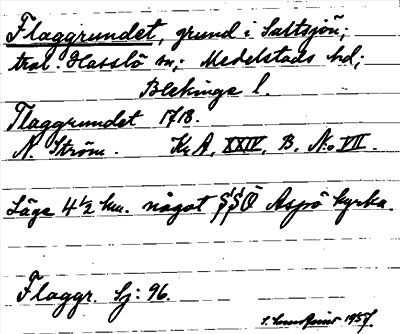 Flaggrundet, grund i Saltsjön,
tral. Hasslö sn; Medelstads hd;
Blekinge l.
Flaggrundet 1718.
N. Ström. Kr. A, XXIV, B, No VII.
Läge 4 1/2 km. något SSÖ Aspö kyrka.
Flaggr. Sj: 96.
1957.